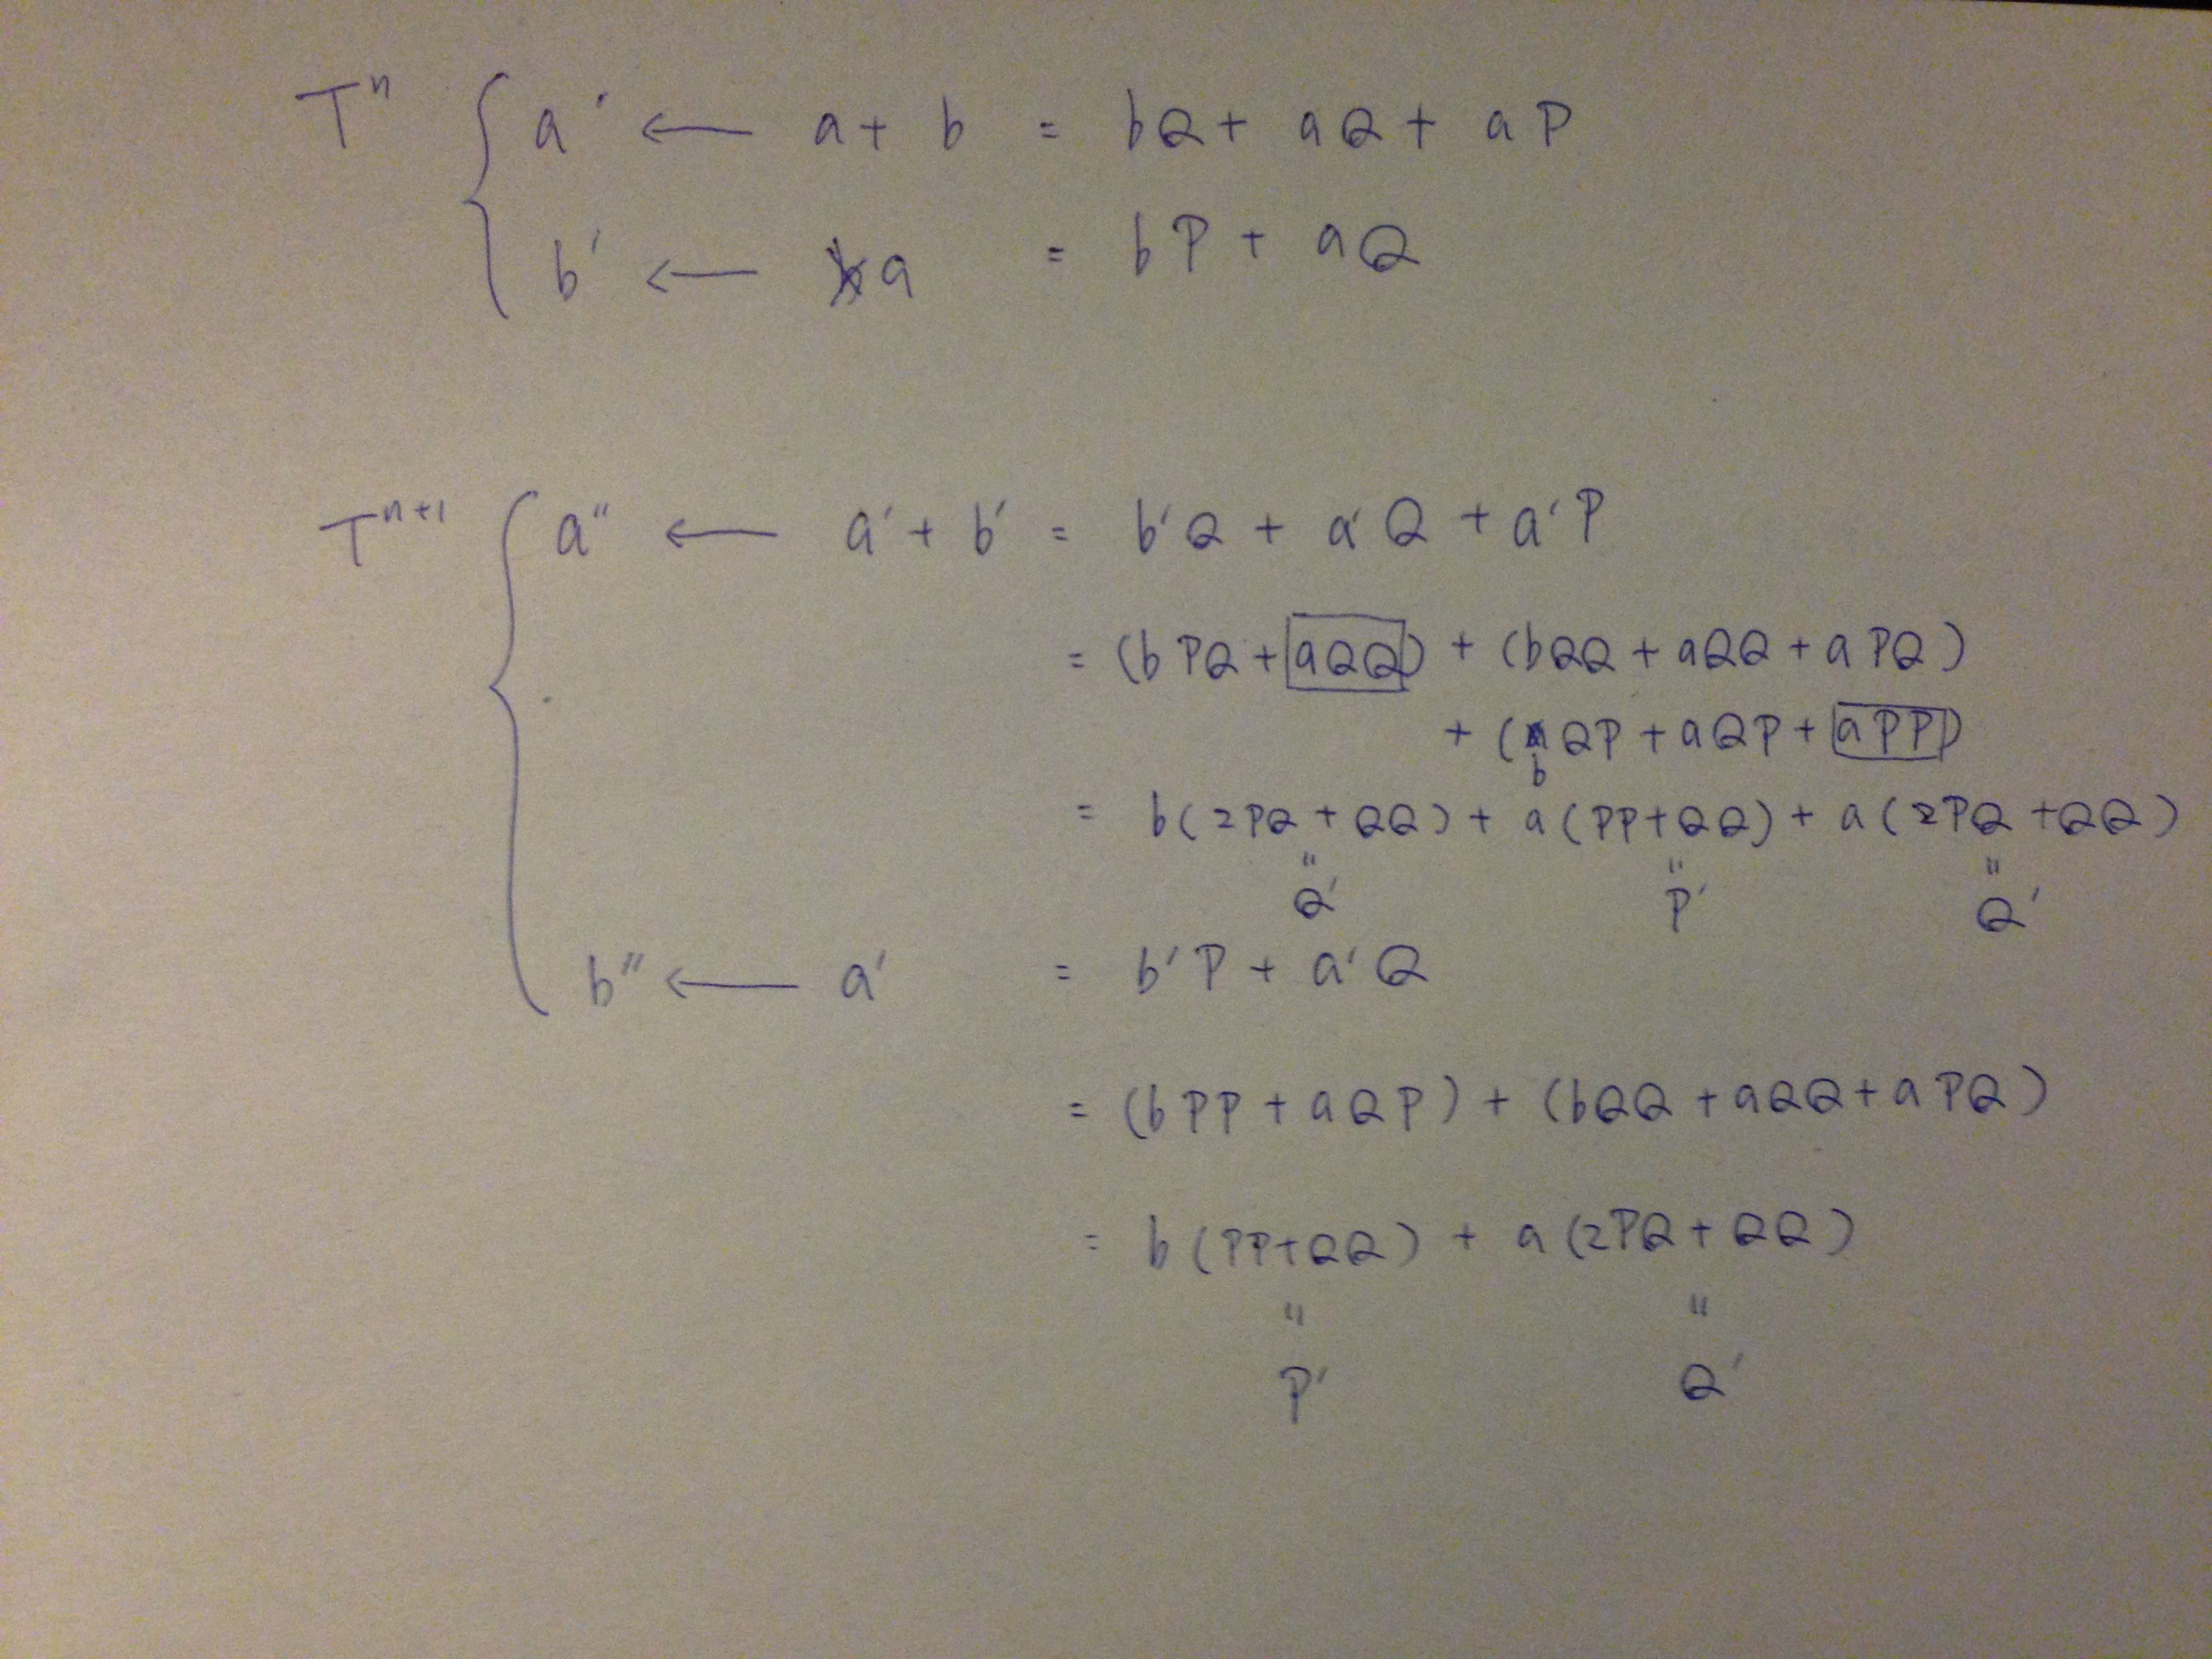 Tⁿ { a' ← a + b = bQ + aQ + aP
b' ← a = bP + aQ
Tⁿ⁺¹ { a'' ← a' + b' = b'Q + a'Q + a'P
= (bPQ + aQQ) + (bQQ + aQQ + aPQ)
+ (bQP + aQP + aPP)
= b(2PQ + QQ) + a(PP+QQ) + a(2PQ+QQ)
" " "
Q' P' Q'
b'' ← a' = b'P + a'Q
= (bPP + aQP) + (bQQ + aQQ + aPQ)
= b(PP+QQ) + a(2PQ + QQ)
" "
P' Q'